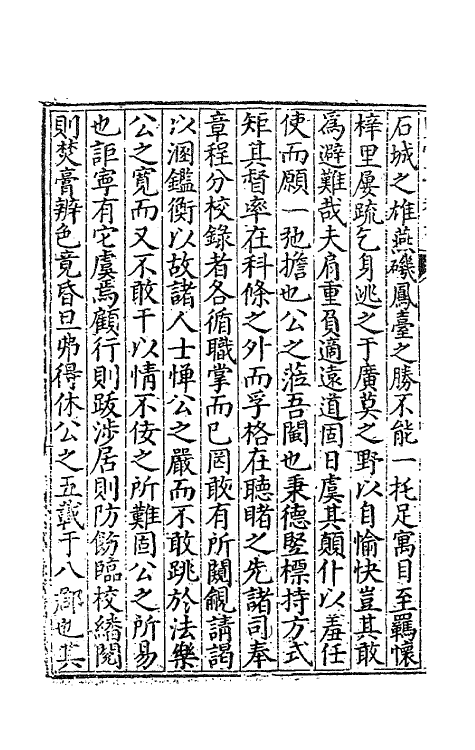 石城之雄燕磯鳳臺之勝不能一托足寓目至羈懷
梓里屢疏乞身逃之于廣莫之野以自愉快豈其敢
爲避難哉夫肩重負適遠道固日虞其顛仆以羞任
使而願一弛擔也公之蒞吾閩也秉德堅標持方式
矩其督率在科條之外而孚格在聽睹之先諸司奉
章程分校錄者各循職掌而已罔敢有所闚覦請謁
以溷鑑衡以故諸人士憚公之嚴而不敢跳於法樂
公之寬而又不敢干以情不佞之所難固公之所易
也詎寧有它虞焉顧行則跋涉居則防飭臨校繙閱
則焚膏辨色竟昏旦弗得休公之五載于八郡也其